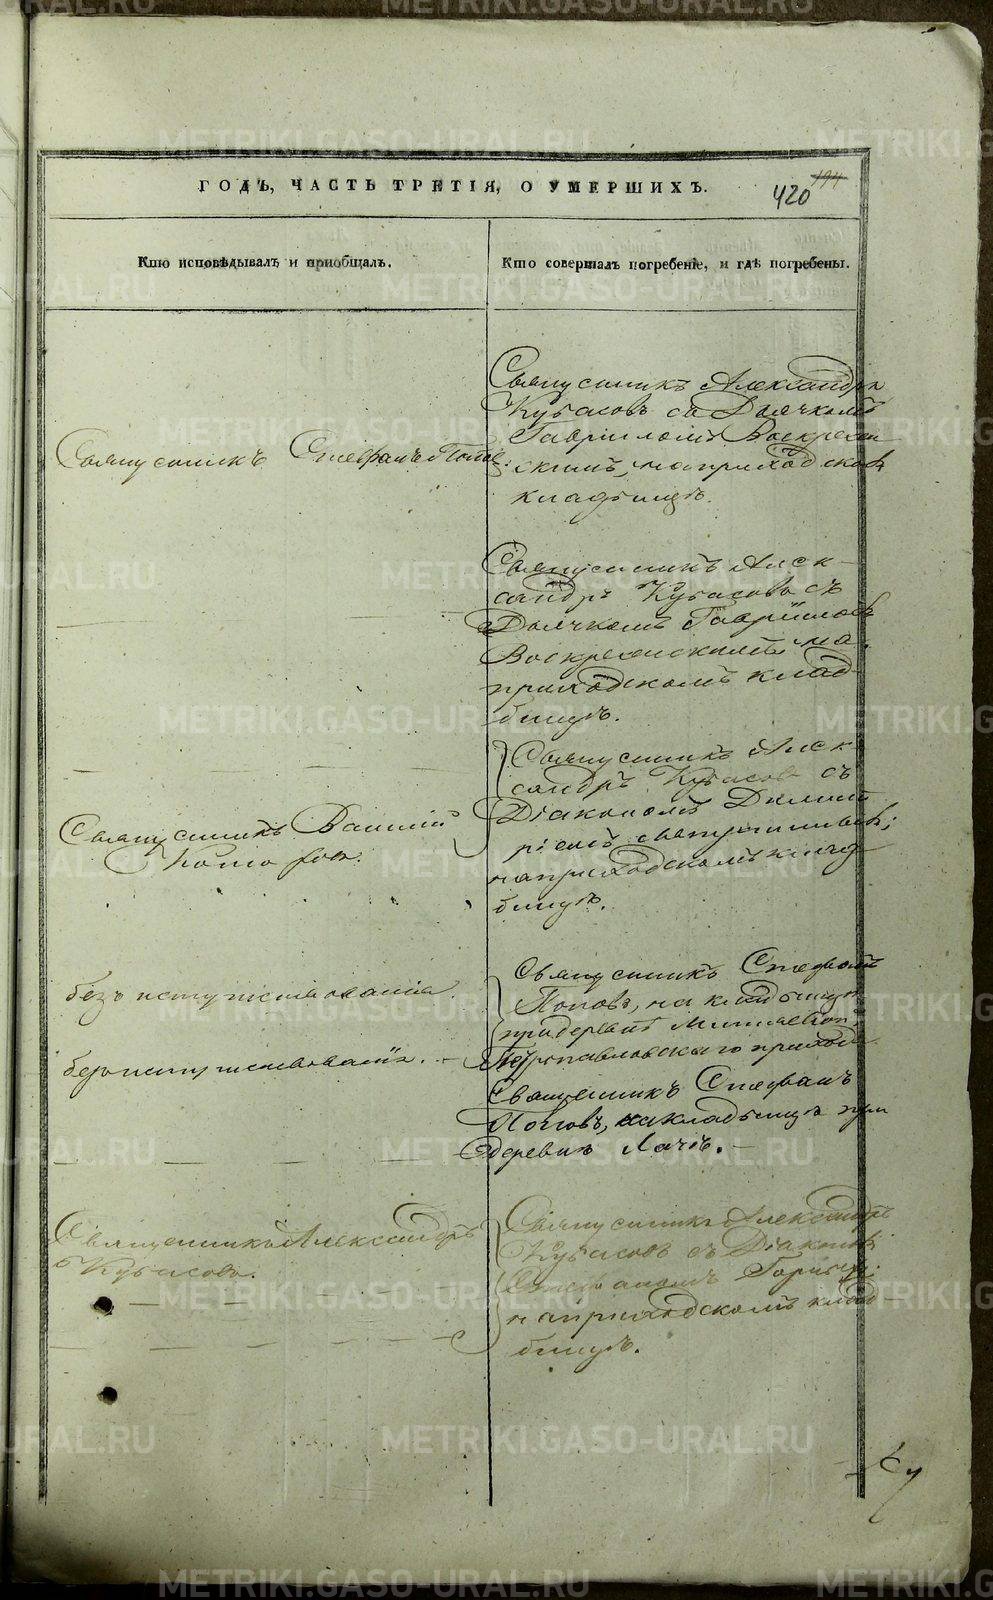 ГОДЪ, ЧАСТЬ ТРЕТІЯ, О УМЕРШИХЪ.
194
420
Кто исповѣдывалъ и приобщалъ.
Кто совершалъ погребеніе, и гдѣ погребены.
Священникъ Стефанъ Попов
Священникъ Александръ
Кубасовъ съ Дьячкомъ
Гавриіломъ Воскресен
скимъ, на приходском
кладбищѣ.
Священникъ Алек
сандръ Кубасовъ съ
Дьячкомъ Гавріилом
Воскресенскимъ на
приходскомъ клад
бищѣ.
Священникъ Василій
Священникъ Алек
сандръ Кубасовъ съ
Діакономъ Димит
ріемъ
на приходскомъ клад
бищѣ.
безъ напутствованія.
Священникъ Стефанъ
Поповъ, на кладбищѣ
при деревнѣ
Петропавловскаго прихода.
безъ напутствованія.
Священникъ Стефанъ
Поповъ, на кладбищѣ при
деревнѣ Лачѣ.
Священникъ Александръ
Кубасовъ.
Священникъ Александръ
Кубасовъ съ Діакономъ
Стефаномъ
на приходскомъ клад
бищѣ.
METRIKI.GASO-URAL.RU